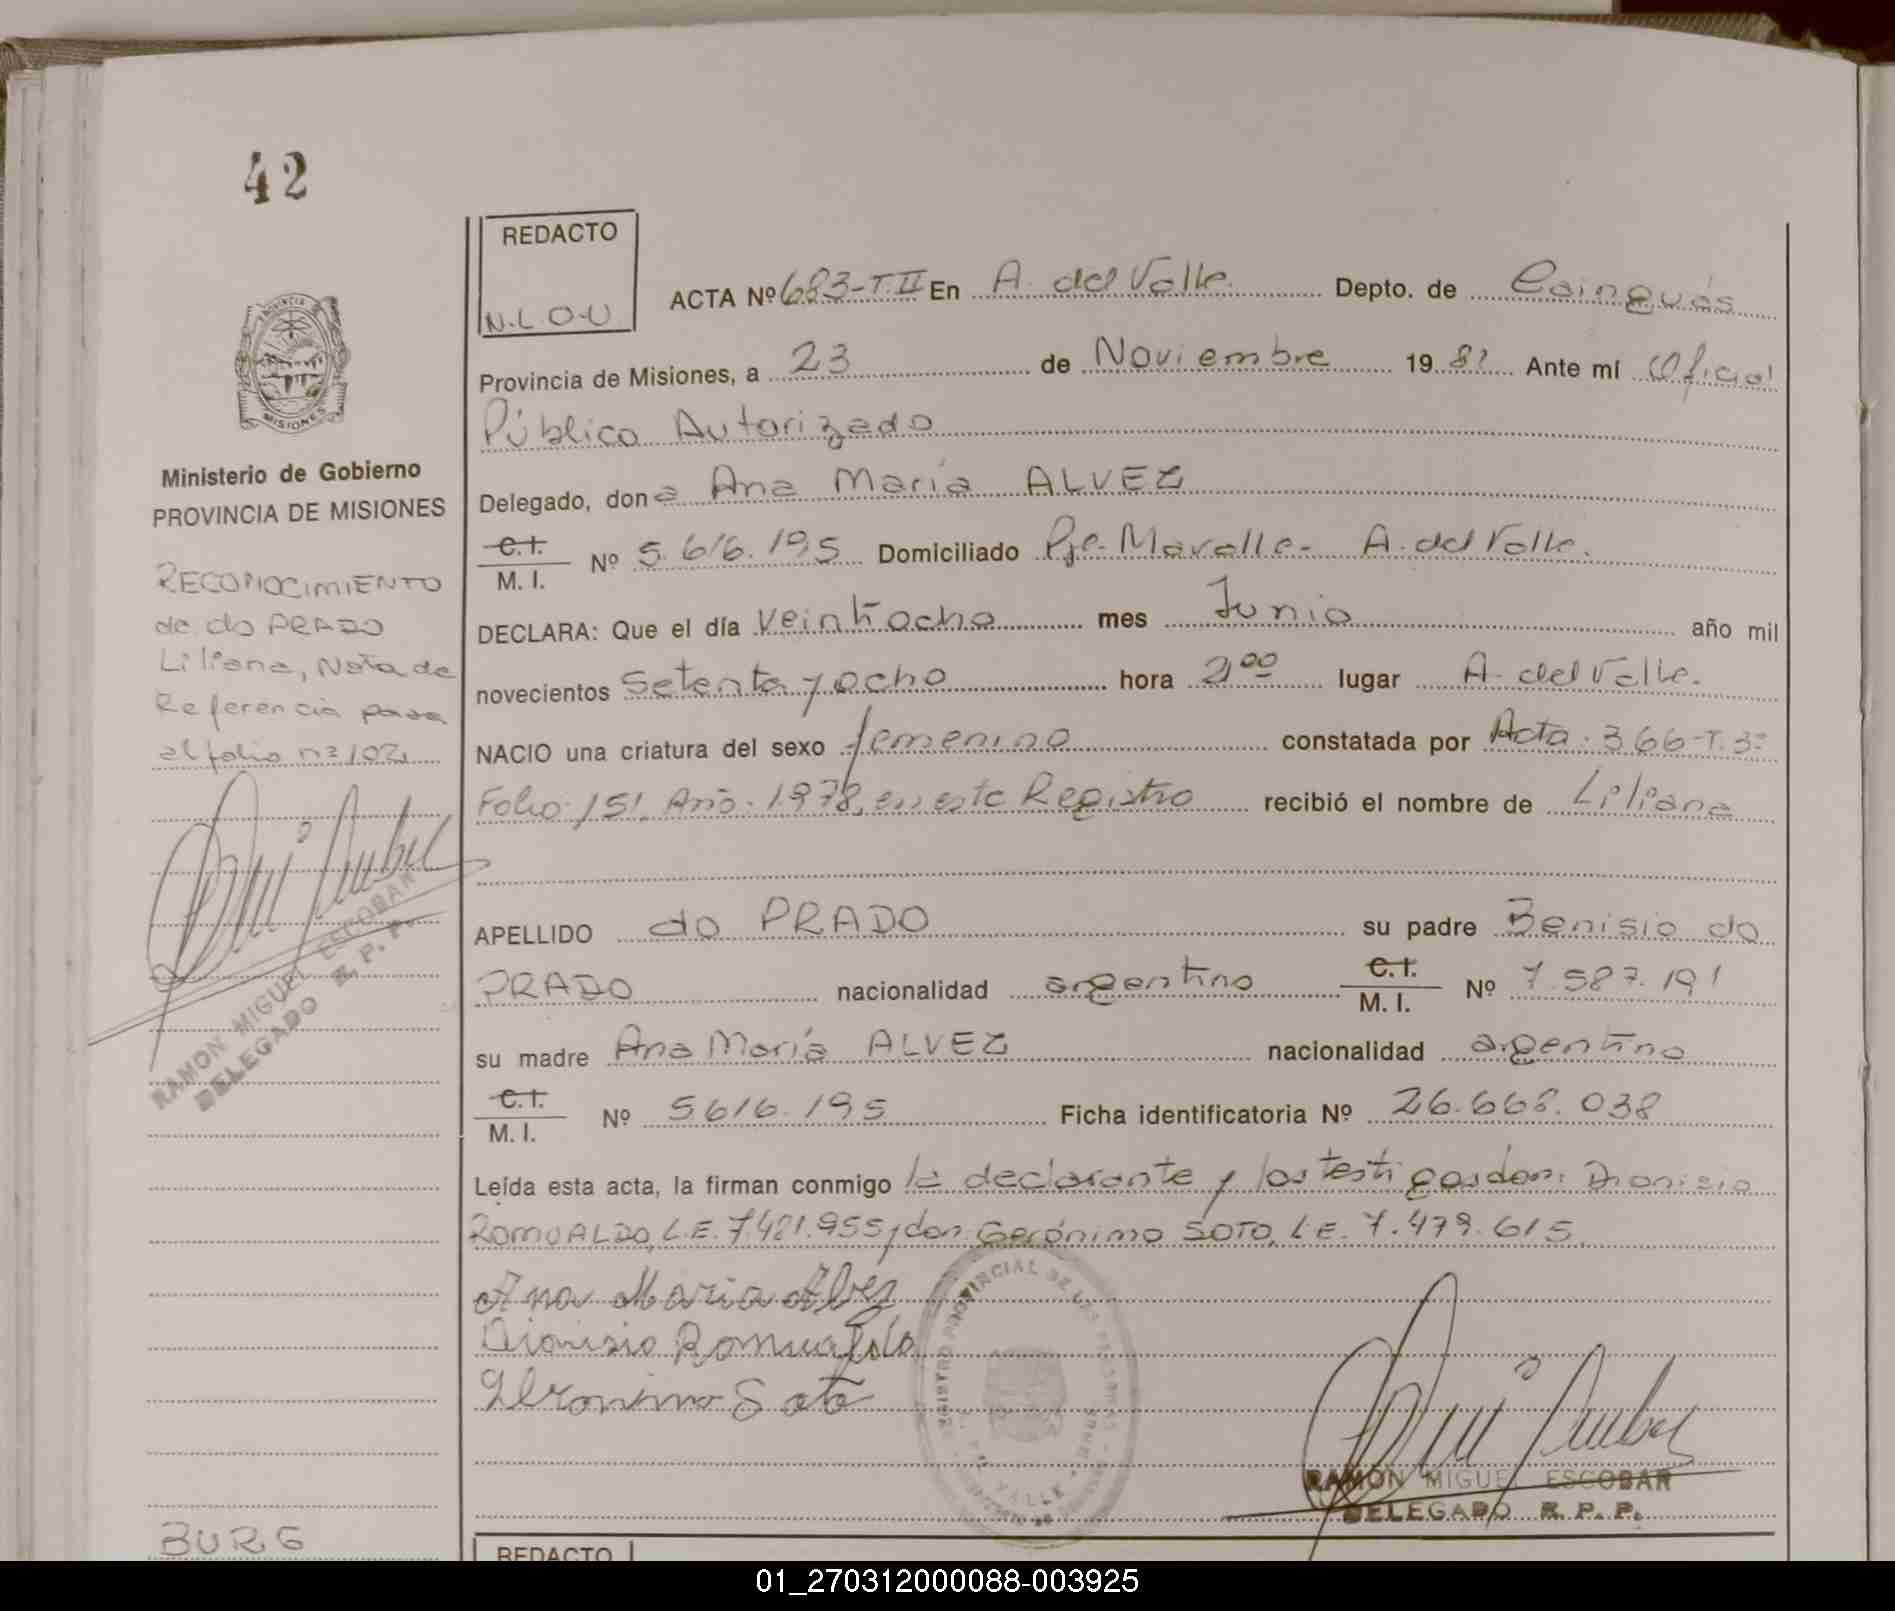 42
REDACTO
N.L.O.U
ACTA Nº 683-T.II En A. del Valle. Depto. de Cainguás
Provincia de Misiones, a 23 de Noviembre 19 82 Ante mí Oficial
Público Autorizado
Delegado, don a Ana María ALVEZ
C.I.
M. I. Nº 5.616.195 Domiciliado Pje. Mavalle- A. del Valle.
DECLARA: Que el día veintiocho mes Junio año mil
novecientos Setenta y ocho hora 21 00 lugar A. del Valle.
NACIO una criatura del sexo femenino constatada por Acta. 366-T.3º
Folio. 151. Año. 1.978, en este Registro recibió el nombre de Liliana
APELLIDO do PRADO su padre Benisio do
PRADO nacionalidad argentino C.I. M. I. Nº 7.587.191
su madre Ana María ALVEZ nacionalidad argentino
C.I.
M. I. Nº 5616.195 Ficha identificatoria Nº 26.668.038
Leída esta acta, la firman conmigo la declarante y los testigos don: Dionisio
ROMUALDO, L.E. 7.421.955 y don Gerónimo SOTO, L.E. 7.479.615.
Ana Maria Alvez
Dionisio Romualdo
Geronimo Soto
RAMON MIGUEL ESCOBAR
DELEGADO R. P. P.
PROVINCIA
MISIONES
Ministerio de Gobierno
PROVINCIA DE MISIONES
RECONOCIMIENTO
de do PRADO
Liliana, Nota de
Referencia pasa
al folio nº 102
RAMON MIGUEL ESCOBAR
DELEGADO R. P. P.
BURG
REDACTO
01_270312000088-003925